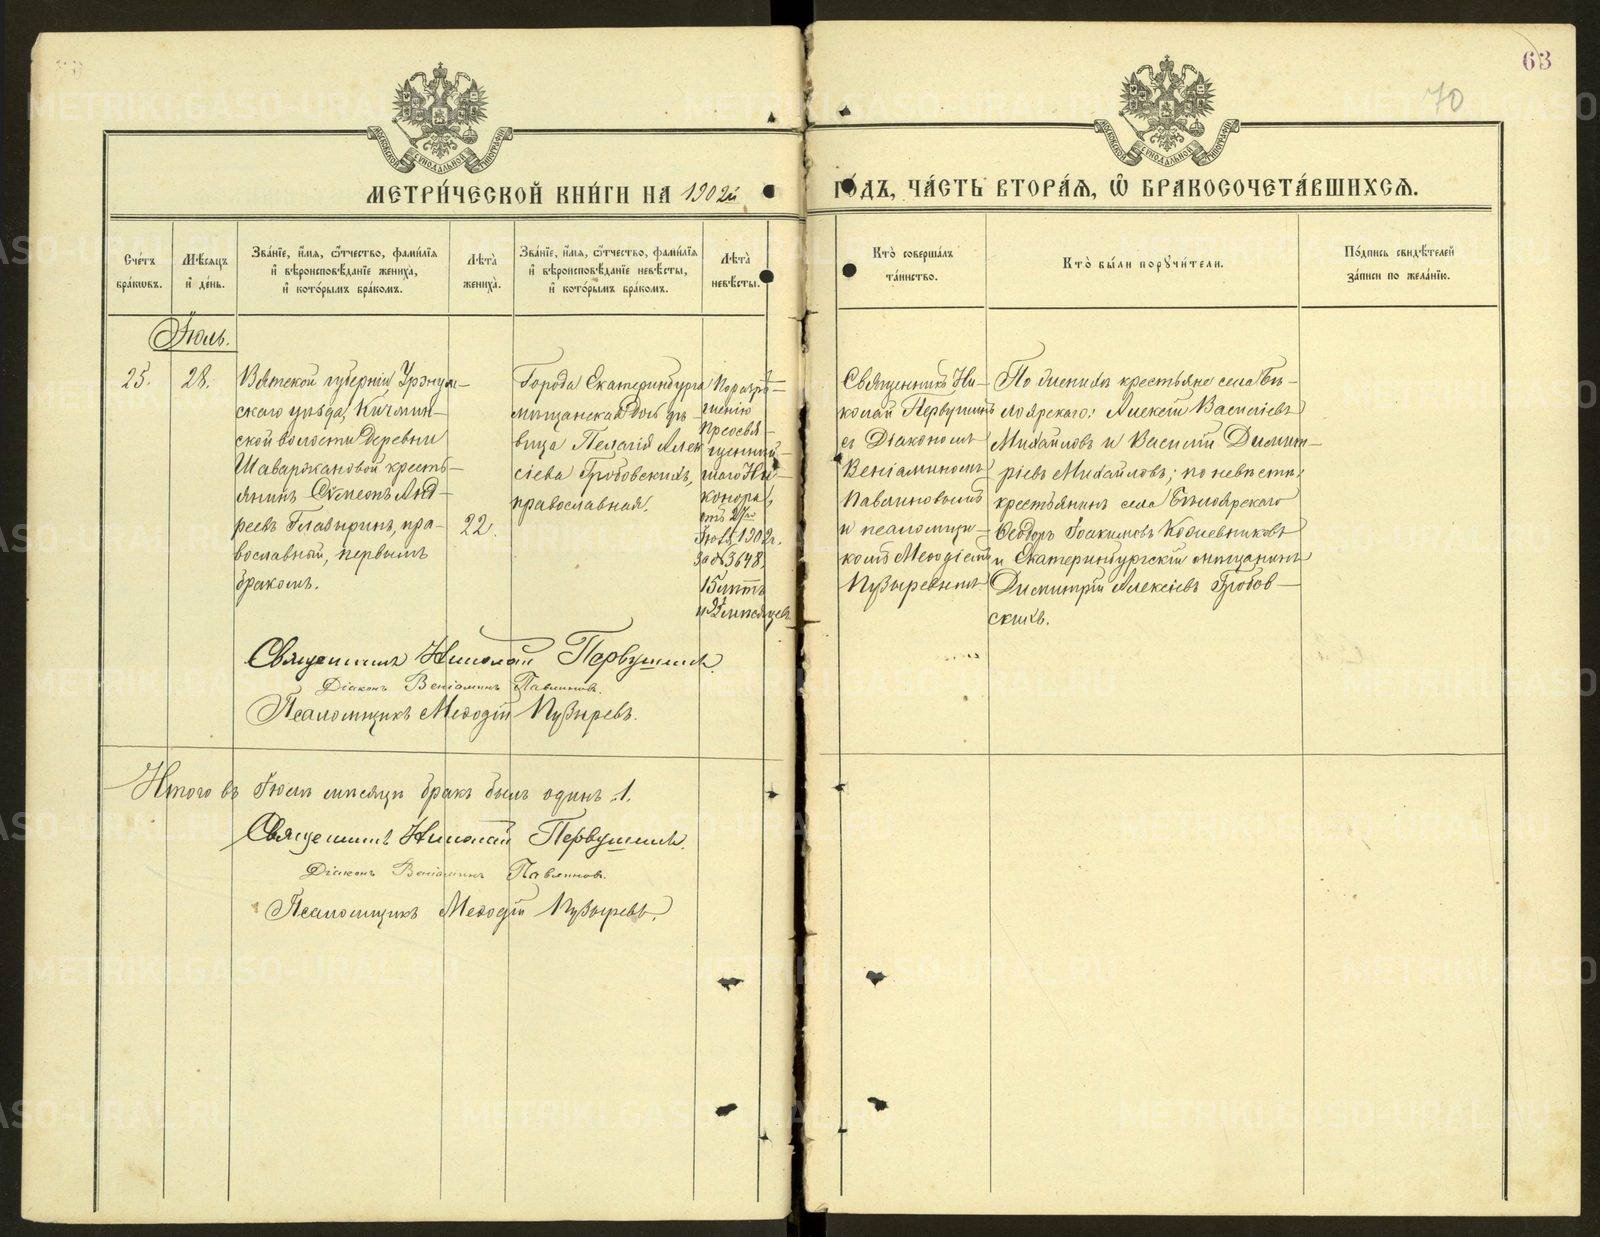 63
70
МОСКОВСКОЙ СѴНОДАЛЬНОЙ ТИПОГРАФІИ
МОСКОВСКОЙ СѴНОДАЛЬНОЙ ТИПОГРАФІИ
МЕТРИ́ЧЕСКОЙ КНИ́ГИ НА 1902й
ГО́ДЪ, ЧА́СТЬ ВТОРА́Ѧ, Ѿ БРАКОСОЧЕТА́ВШИХСѦ.
Сче́тъ бра́кωвъ.
Мѣ́сѧцъ и҆ де́нь.
Зва́нїе, и҆́мѧ, ѻ҆́тчество, фами́лїѧ
и҆ вѣроисповѣ́данїе жениха̀,
и҆ кото́рымъ бра́комъ.
Лѣта̀ жениха̀.
Зва́нїе, и҆́мѧ, ѻ҆́тчество, фами́лїѧ
и҆ вѣроисповѣ́данїе невѣ́сты,
и҆ кото́рымъ бра́комъ.
Лѣта̀ невѣ́сты.
Кто̀ соверша́лъ
та́инство.
Кто̀ бы́ли порꙋчи́тели.
По́дпись свидѣ́телей
за́писи по жела́нїю.
Іюль.
25.
28.
Вятской губерніи Уржум-
скаго уѣзда, Кичмин-
ской волости деревни
Шаваржановой кресть-
янинъ Сѵмеонъ Анд-
реевъ Главыринъ, пра-
вославный, первымъ
бракомъ.
22.
Города Екатеринбурга
мѣщанская дочь дѣ-
вица Пелагія Алек
сіева Гробовскихъ,
православная.
По разрѣ-
шенію
Преосвя-
щеннѣй-
шаго Ни-
канора
отъ 27го
Іюля 1902г.
за № 3648,
15 лѣтъ
и мѣсяцев
Священникъ Ни-
колай Первушинъ
съ Діакономъ
Веніаминомъ
Павлиновымъ
и псаломщи-
комъ Меѳодіемъ
Пузыревымъ
По женихѣ крестьяне села Бѣ-
лоярскаго: Алексій Василіевъ
Михайловъ и Василій Димит-
ріевъ Михайловъ; по невѣстѣ:
крестьянинъ села Бѣлоярскаго
Ѳеодоръ Іоакимовъ Кожевниковъ
и Екатеринбургскій мѣщанинъ
Димитрій Алексіевъ Гробов-
скихъ.
Священникъ Николай Первушинъ.
Діаконъ Веніаминъ Павлиновъ.
Псаломщикъ Меѳодій Пузыревъ.
Итого въ Іюлѣ мѣсяцѣ бракъ былъ одинъ .1.
Священникъ Николай Первушинъ.
Діаконъ Веніаминъ Павлиновъ.
Псаломщикъ Меѳодій Пузыревъ.
METRIKI.GASO-URAL.RU